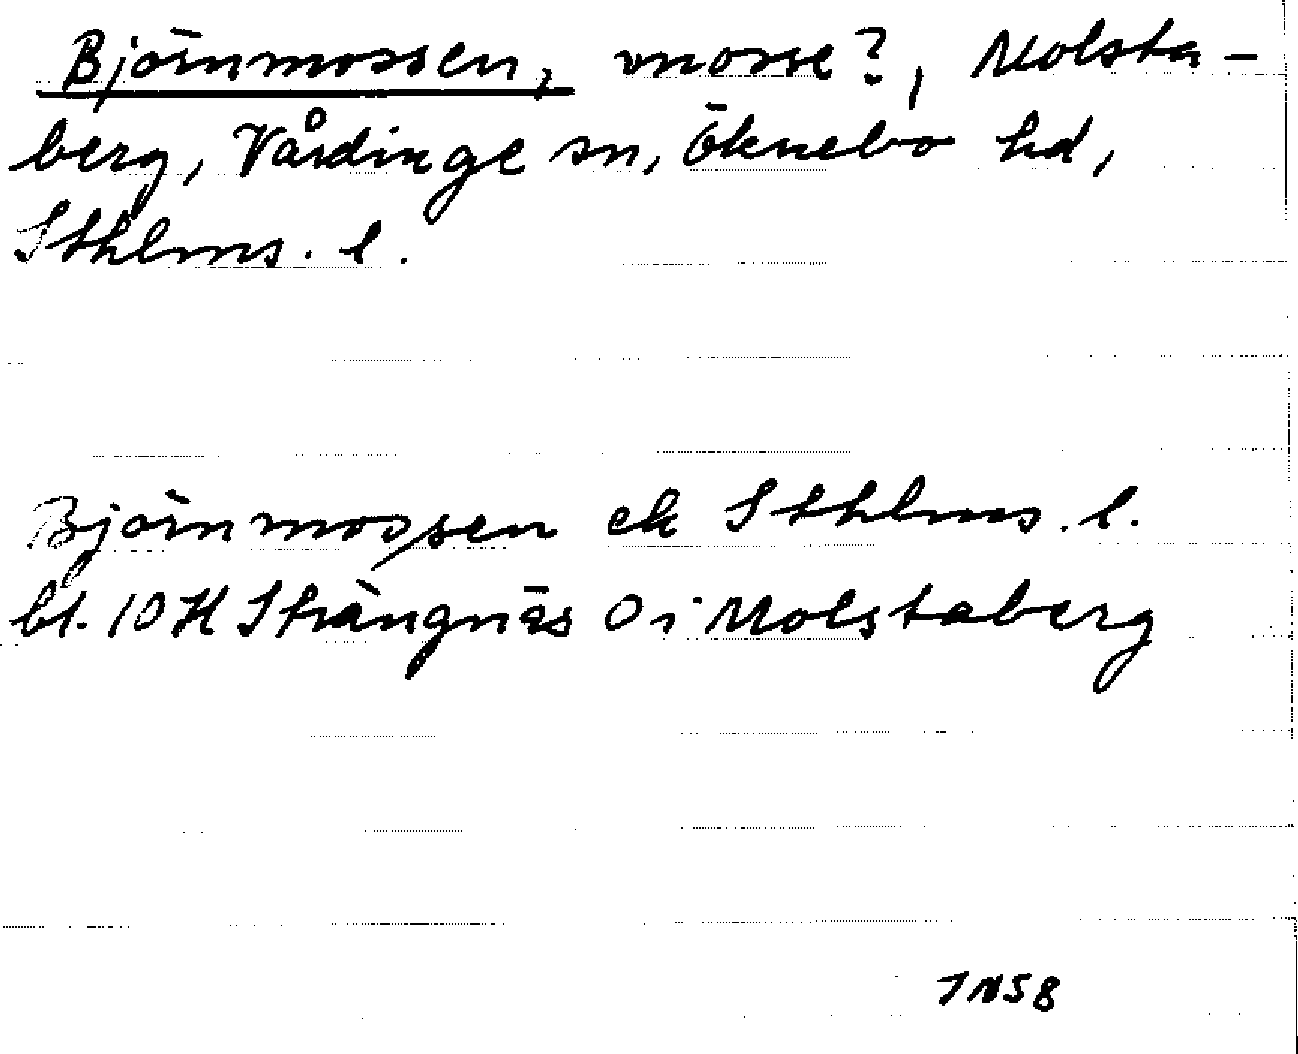 Björnmossen, mosse?, Molsta-
berg, Vårdinge sn, Öknebo hd,
Sthlms. l.
Björnmossen ek Sthlms. l.
bl. 10 H Strängnäs O i Molstaberg
INSB